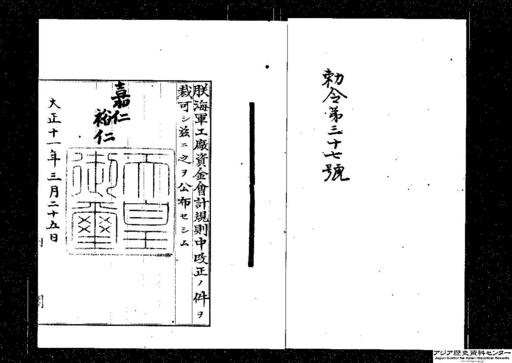 勅令第三十七號
朕海軍工廠資金會計規則中改正ノ件ヲ
裁可シ茲ニ之ヲ公布セシム
嘉仁
裕仁
天皇
御璽
大正十一年三月二十五日
アジア歴史資料センター
Japan Center for Asian Historical Records